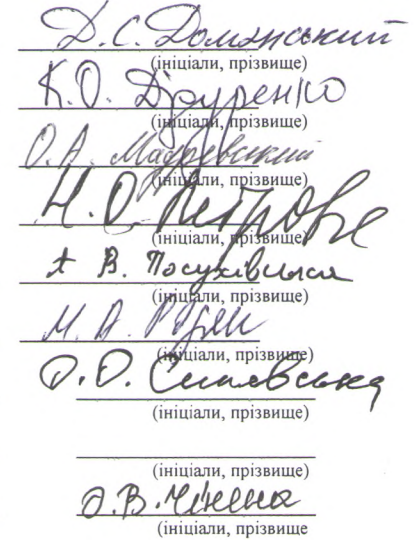 Д.С. Доманський
(ініціали, прізвище)
К.О.
(ініціали, прізвище)
О.А.
(ініціали, прізвище)
Н.О. Петрова
(ініціали, прізвище)
А В. Посухівська
(ініціали, прізвище)
М.А.
(ініціали, прізвище)
О.О.
(ініціали, прізвище)
(ініціали, прізвище)
О.В. Чінена
(ініціали, прізвище